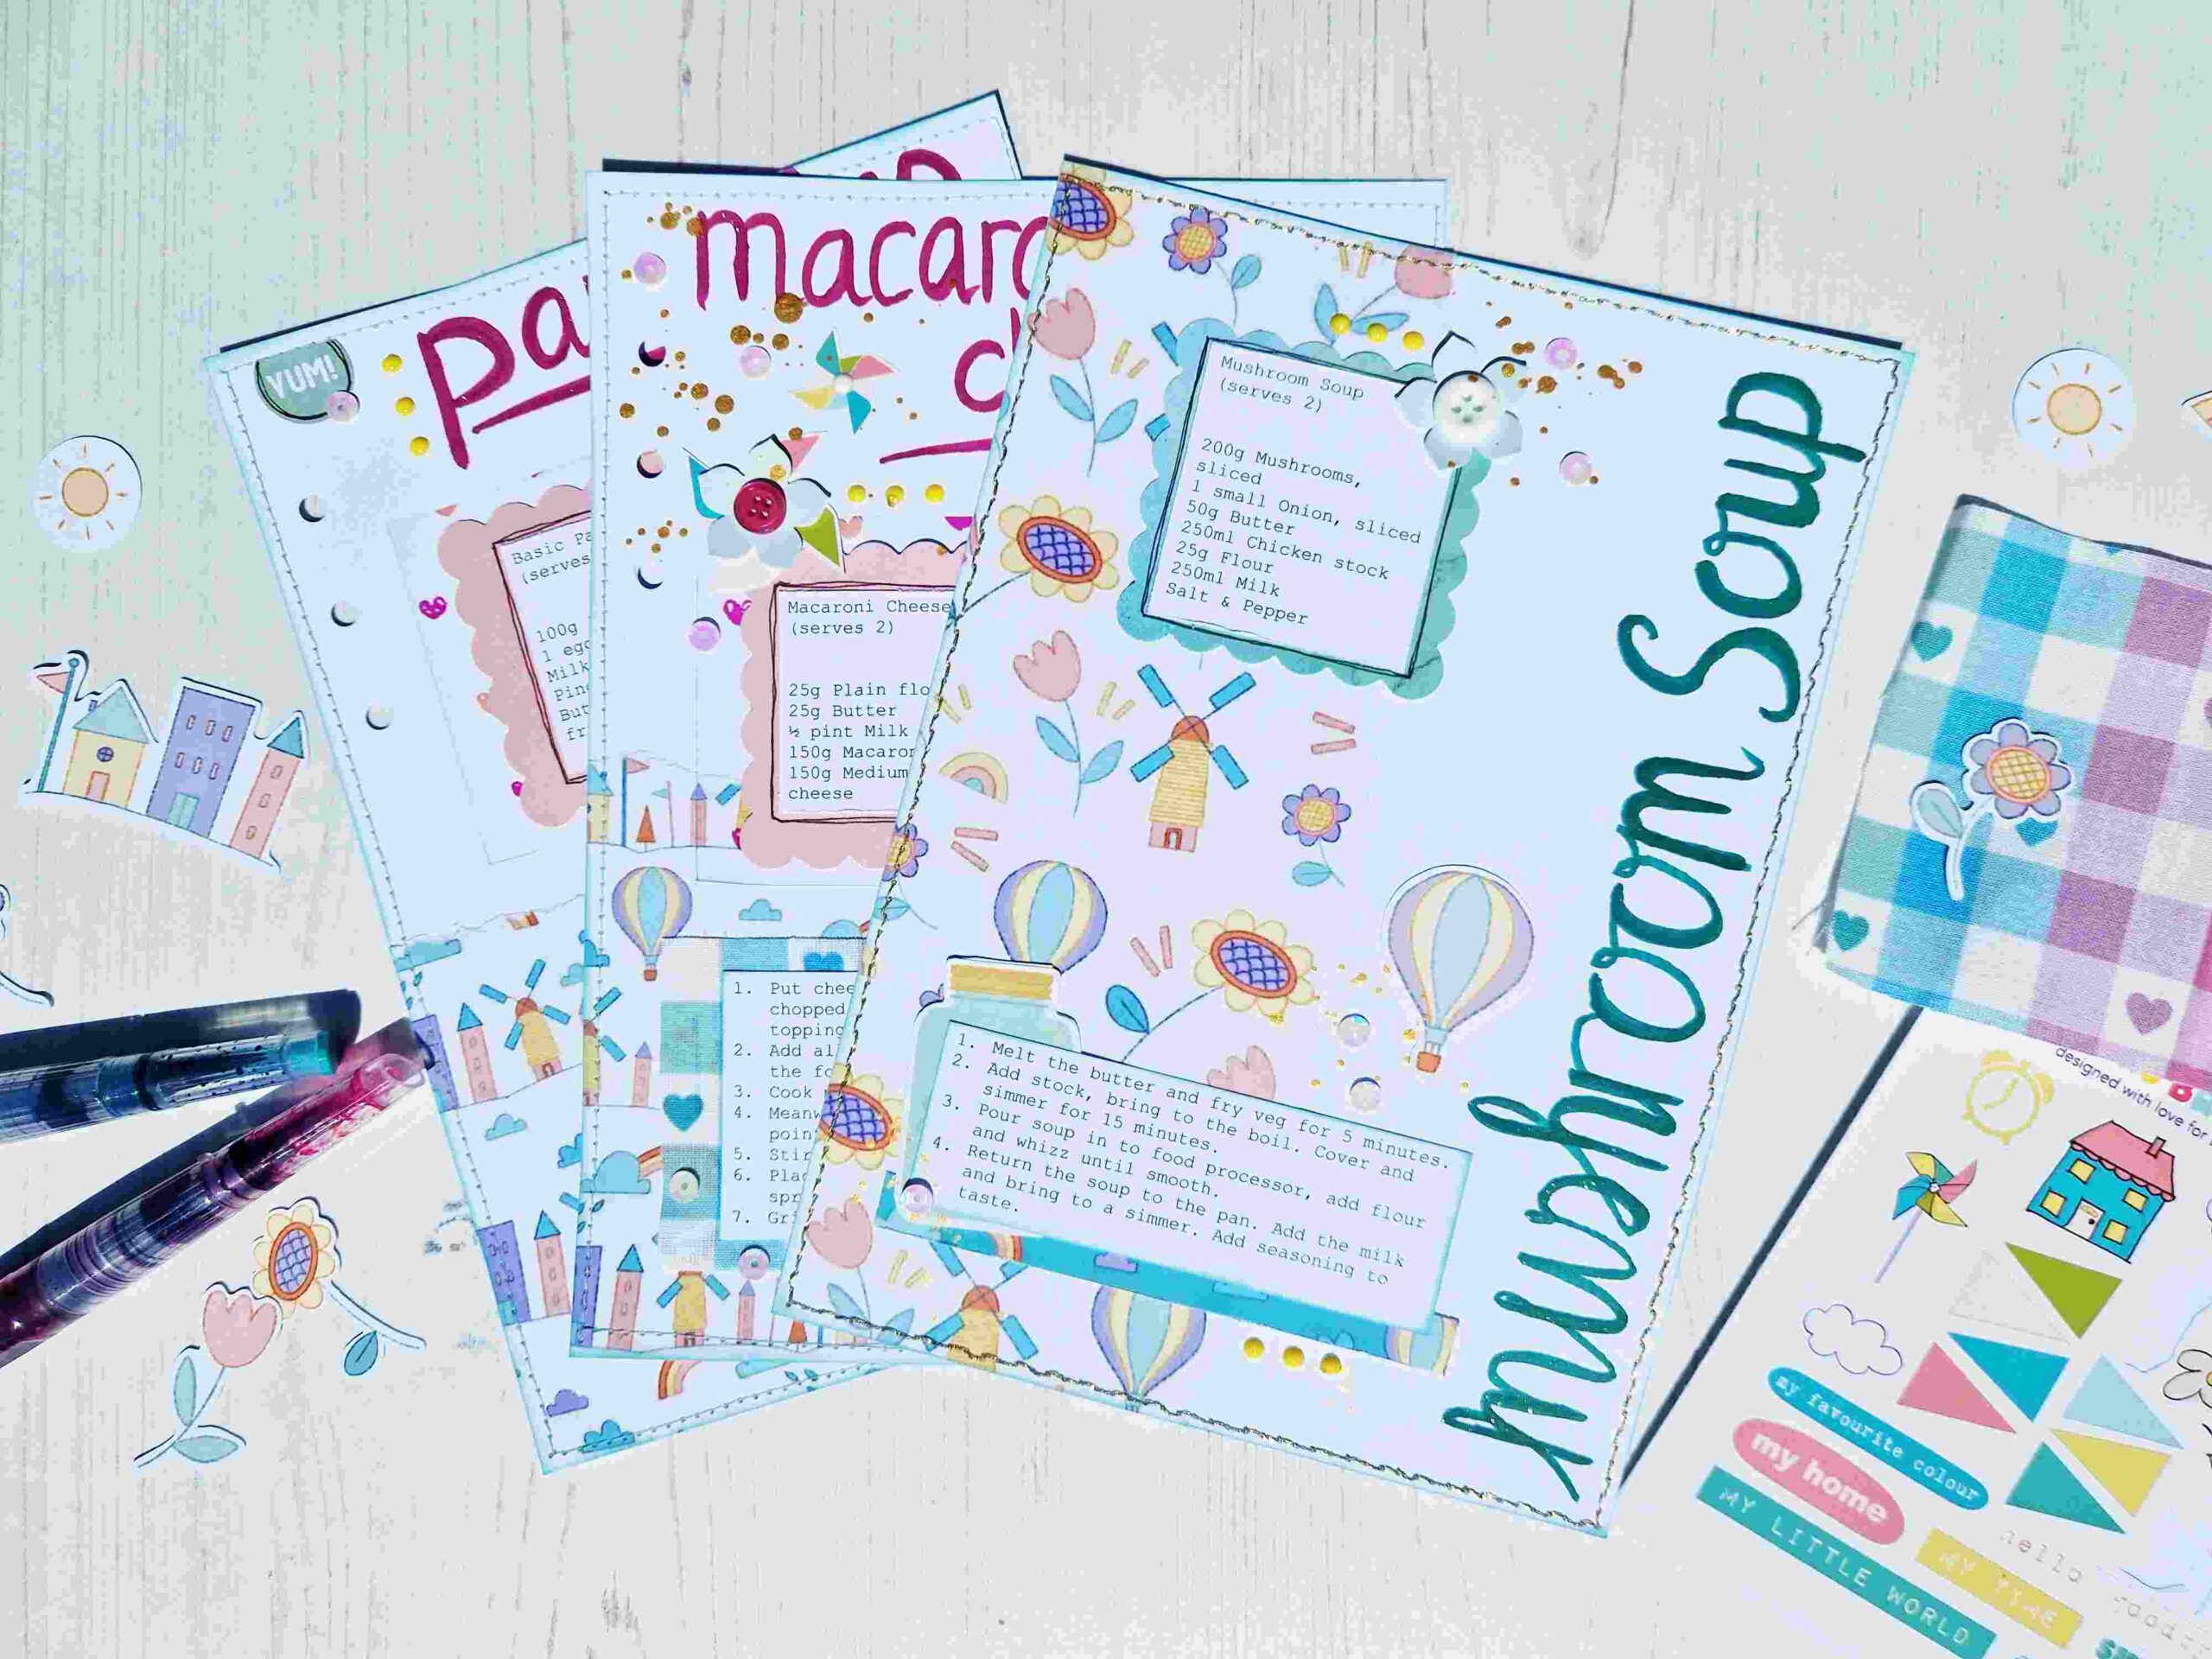 YUM!
Basic
(serves
100g
1
macaro
Macaroni Cheese
(serves 2)
25g Plain
25g Butter
½ pint Milk
150g
150g Medium
cheese
1. Put
chopped
topping
2. Add
the
3. Cook
4.
5.
6.
7.
Mushroom Soup
(serves 2)
200g Mushrooms,
sliced
1 small Onion, sliced
50g Butter
250ml Chicken stock
25g Flour
250ml Milk
Salt & Pepper
1. Melt the butter and fry veg for 5 minutes.
2. Add stock, bring to the boil. Cover and
simmer for 15 minutes.
3. Pour soup in to food processor, add flour
and whizz until smooth.
4. Return the soup to the pan. Add the milk
and bring to a simmer. Add seasoning to
taste.
mushroom Soup
designed with love for
my favourite colour
my home
MY LITTLE WORLD
MY TIME
hello